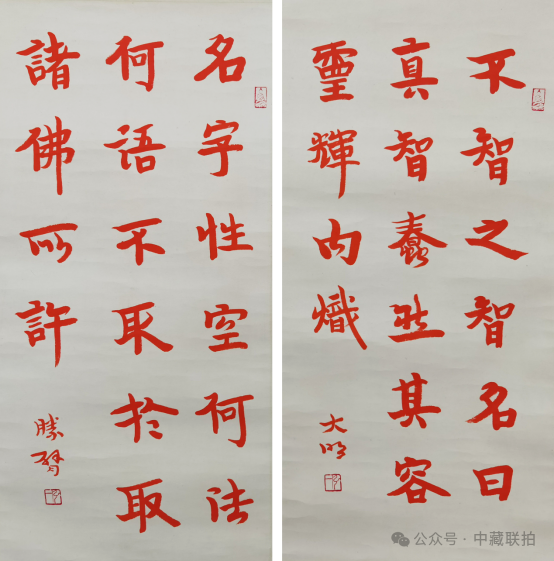 不智之智名曰
真智蠢然其容
靈輝内熾
大明
名字性空何法
何語不取於取
諸佛所許
勝臂
公众号·中藏联拍